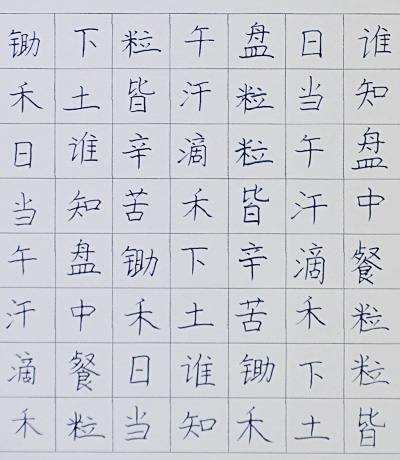 锄下粒午盘日谁
禾土皆汗粒当知
日谁辛滴粒午盘
当知苦禾皆汗中
午盘锄下辛滴餐
汗中禾土苦禾粒
滴餐日谁锄下粒
禾粒当知禾土皆